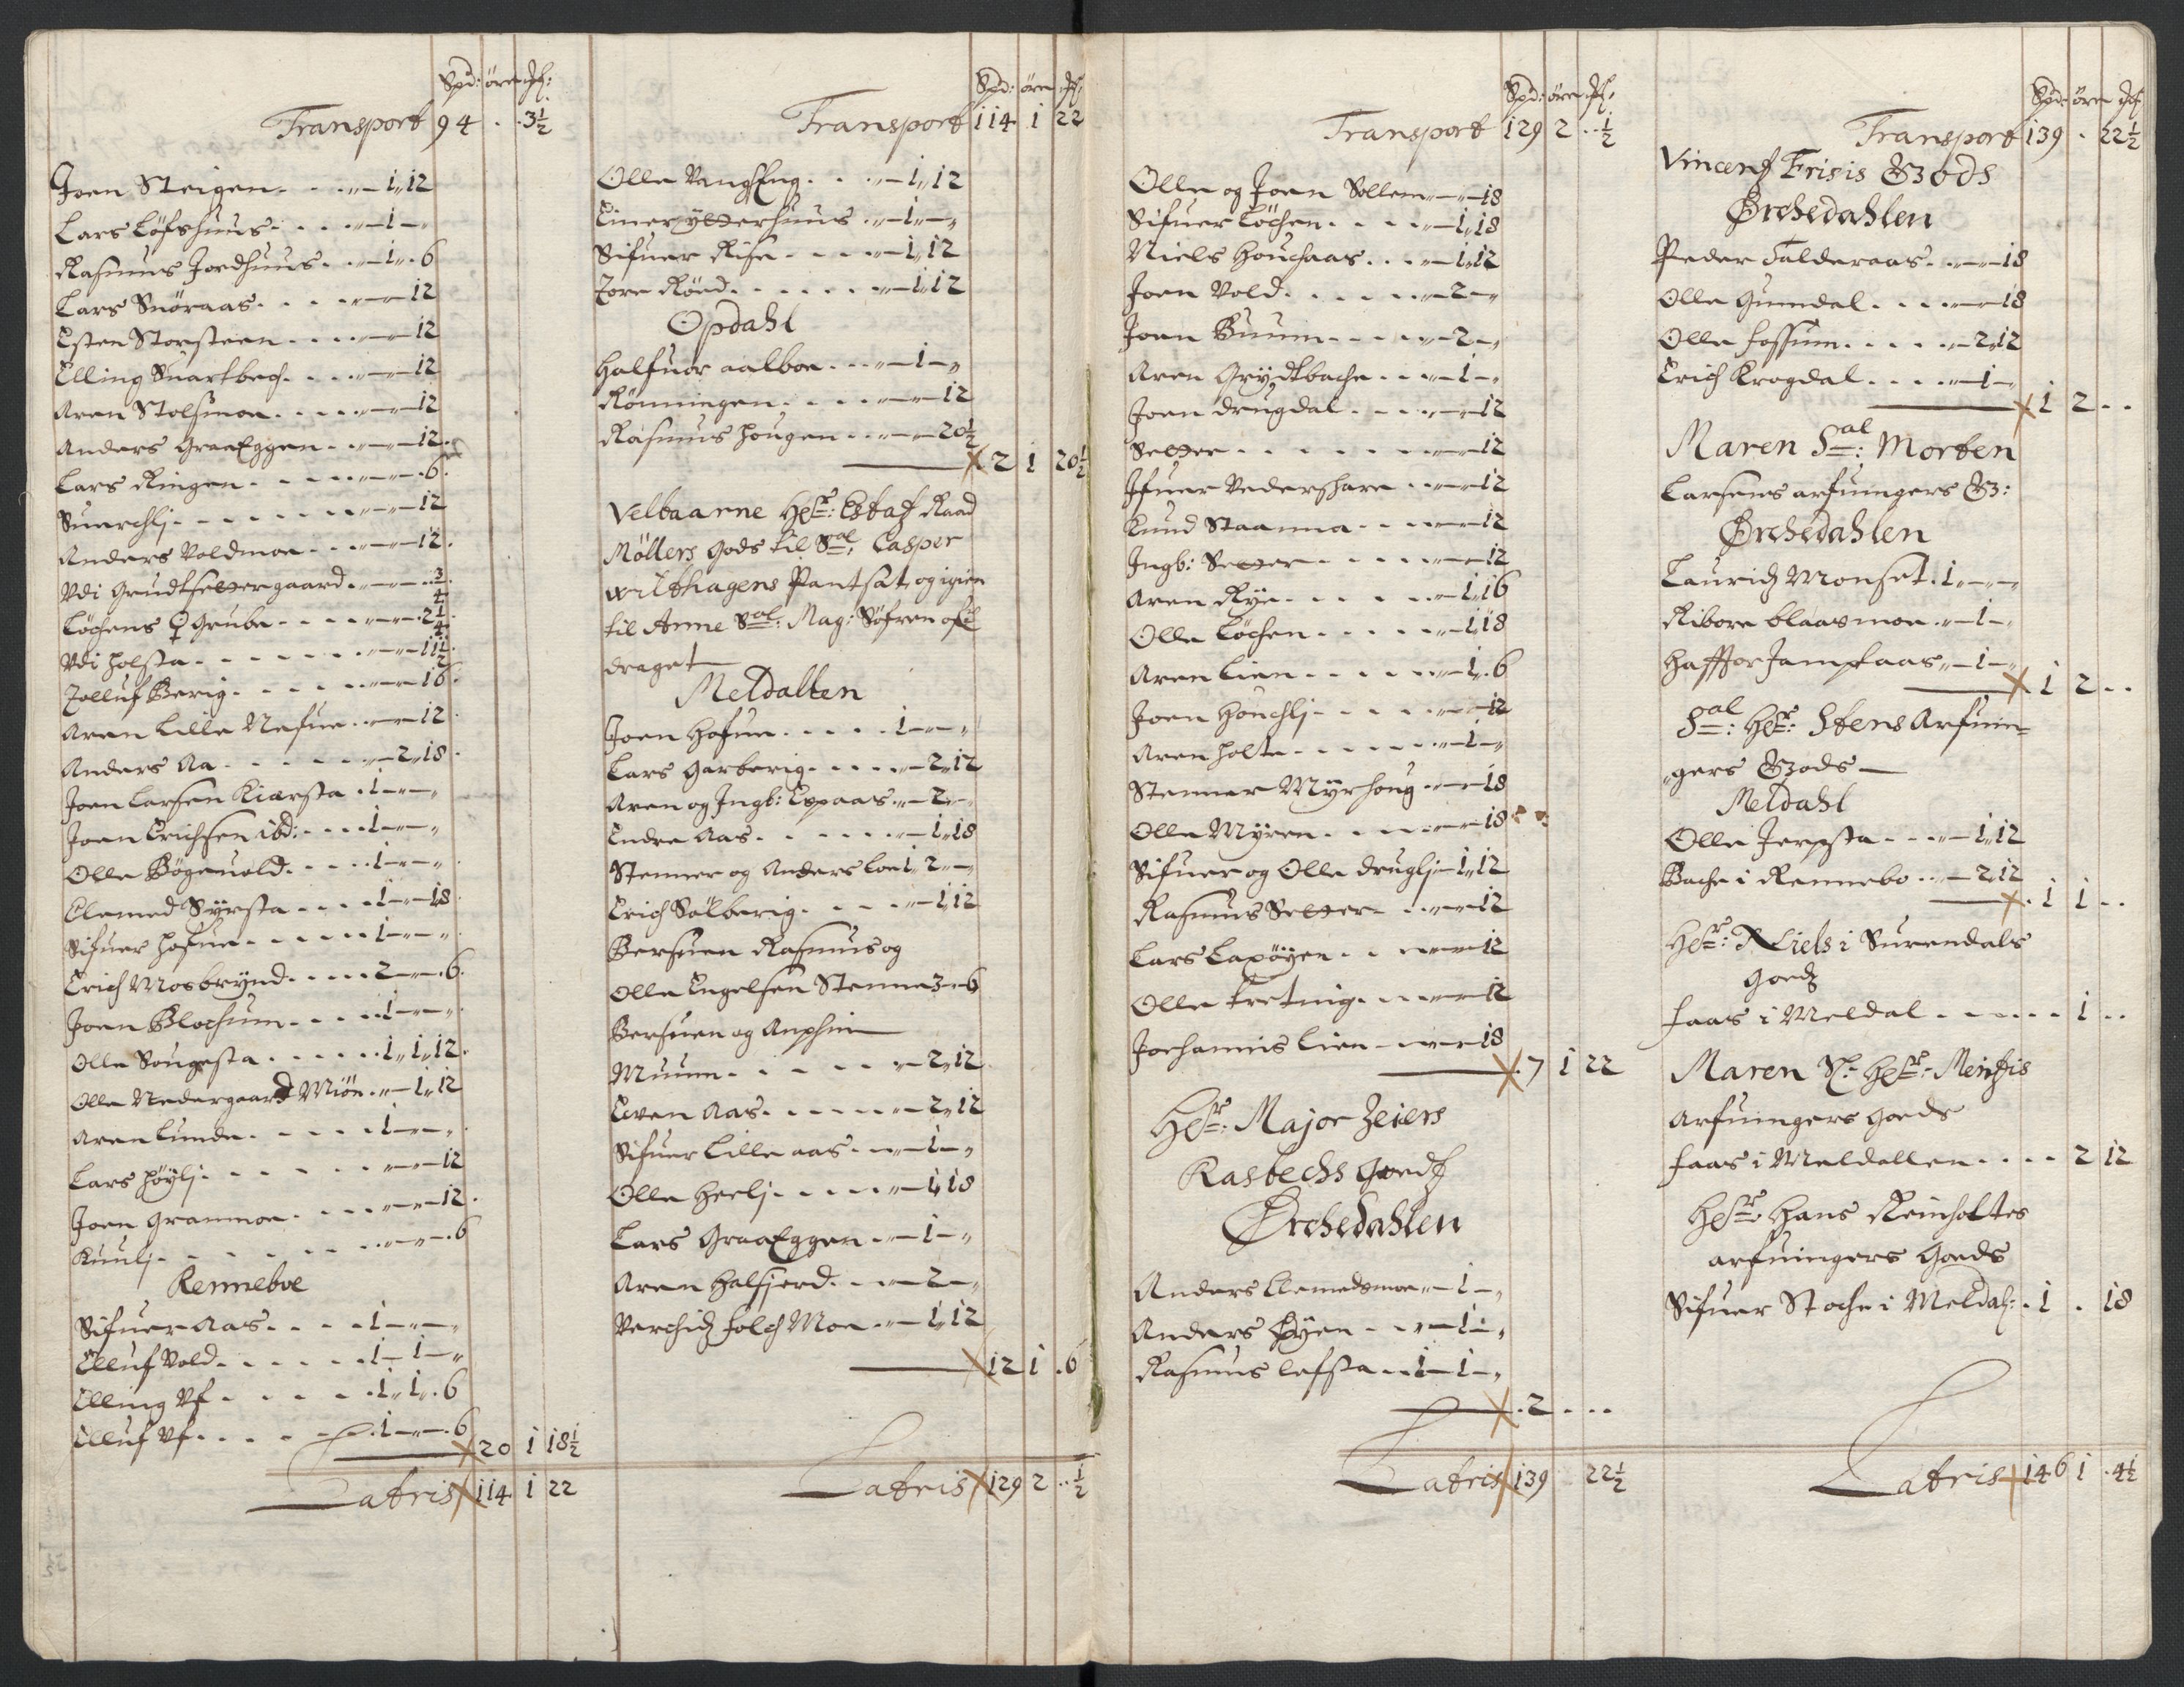 Spd: öre
Transport 94 . . 3½
Joen Steigen . . . „ – 1 „ 12
Lars Löfshuus . . . . „ – 1 – „
Rasmus Jordhuus . . „ – 1 „ . 6
Lars Snöraas . . . . „ – „ – 12
Esten Storsteen . . . . „ – „ – 12
Elling Snartbech . . . . „ – „ – 12
Aren Stolsmoe . . . . . „ – „ – 12
Anders GraaEggen . . „ – „ – 12
Lars Ringen . . . . . „ – „ – . 6
Snerchlj . . . . . . . . „ – „ – 12
Anders Voldmoe . . . „ – „ – 12
Vdi Grudtsettergaard . „ – „ – . ¾
Löchens ♀ Grube . . . . „ – „ – . 2¼
Vdi Holsta . . . . . . . „ – „ – 11½
Tolluf Berig . . . . . . „ – „ – 16
Aren Lille Nefue . . „ – „ – 12
Anders Aa . . . . . . „ – 2 „ 18
Joen Larsen Kiærsta . 1 – „ – „
Joen Erichsen ibd: . . . . 1 – „ – „
Olle Bögeuold . . . . . 1 – „ – „
Clemed Syrsta . . . . 1 – „ – 18
Sifuer Hofue . . . . . . 1 – „ – „
Erich Mosbrynd . . . . . 2 – „ – . 6
Joen Blochum . . . . . 1 – „ – „
Olle Sougesta . . . . . . 1 „ 1 „ 12
Olle Nedergaard Miöe . „ – 1 „ 12
Aren Lunde . . . . . . 1 – „ – „
Lars Höylj . . . . . . . „ – „ – 12
Joen Granmoe . . . . . „ – „ – 12
Kuulj . . . . . . . . „ – „ – . 6
Renneboe
Sifuer Aas . . . . . 1 – „ – „
Elluf Vold . . . . . . . 1 – 1 – „
Elling Vf . . . . . . 1 „ 1 „ . 6
Elluf Vf . . . . . . 1 – „ – . 6
20 1 18½
Latris 114 1 22
Spd: öre
Transport 114 1 22
Olle VangsEng . . . „ – 1 „ 12
Einer ytterhuus . „ – 1 „ – „
Sifuer Rise . . . . . „ – 1 „ 12
Tore Röed . . . . . . „ – 1 „ 12
Opdahl
Halfuor aalboe . . . „ – 1 – „
Rönningen . . . . . „ – „ – 12
Rasmus Hougen . . „ – „ – 20½
2 1 20½
Velbaarne Hr: Estatz Raad
Möllers gods til Sal: Casper
wilthagens Pantsat og igien
til Anne Sal: Mag: Söfren
draget
Meldallen
Joen Hofue . . . . . 1 – „ – „
Lars Garberig . . . . . „ – 2 „ 12
Aren og Ingb: Espaas . „ – 2 – „
Endre Aas . . . . . . „ – 1 „ 18
Stenner og Anders Loe 1 „ 2 – „
Erich Solberig . . . . „ – 1 „ 12
Bersuen Rasmus og
Olle Engelsen Stenne 3 – „ – 6
Bersuen og Anphin
Muum . . . . . „ – 2 „ 12
Even Aas . . . . . . „ – 2 „ 12
Sifuer Lille aas . . „ – 1 – „
Olle Heelj . . . . . „ – 1 „ 18
Lars GraaEggen . „ – 1 – „
Aren Halsierd . . „ – 2 – „
Verchidz folch Moe . „ – 1 „ 12
12 1 . 6
Latris 129 2 . . ½
Spd: öre
Transport 129 2 . . ½
Olle og Joen Sollem „ – „ – 18
Sifuer Löchen . . . . „ – 1 „ 18
Niels Houchaas . . . „ – 1 „ 12
Joen Vold . . . . . . „ – 2 – „
Joen Buum . . . . „ – 2 – „
Aren Grydtbache . . „ – 1 – „
Joen drugdal . . . . „ – „ – 12
Setter . . . . . . . . „ – „ – 12
Ifuer Vedershare . . „ – „ – 12
Lund Staanna . . . . „ – „ – 12
Ingb: Setter . . . . . „ – „ – 12
Aren Rye . . . . . „ – 1 „ 16
Olle Löchen . . . . . „ – 1 „ 18
Aren Lien . . . . . . „ – 1 „ . 6
Joen Houchlj . . . . . „ – „ – 12
Aren Holte . . . . . . „ – 1 – „
Stenner Myrhoug . „ – „ – 18
Olle Myren . . . . . „ – „ – 18
Sifuer og Olle druglj „ – 1 „ 12
Rasmus Setter . . „ – „ – 12
Lars Laxöyen . . „ – „ – 12
Olle . . . „ – „ – 12
Johannis Lien . „ – „ – 18
. 7 1 22
Hr: Major Zeiers
Rasbechs Goedtz
Ørchedahlen
Anders Clemedsmoe „ – 1 – „
Anders Øyen . . „ – 1 – „
Rasmus Lefsta . . 1 – 1 – „
. 2 . . . .
Latris 139 22½
Spd: öre
Transport 139 . 22½
Vincentz Frisis Gods
Ørchedahlen
Peder Falderaas . . „ – „ – 18
Olle Gumdal . . . . „ – „ – 18
Olle fossum . . . . . „ – 2 „ 12
Erich Krogdal . . . . „ – 1 – „
1 2 . .
Maren Sal: Morten
Larsens arfuingers G:
Ørchedahlen
Lauridz Monset . 1 „ – „ – „
Ribore blaasmoe . „ – 1 – „
Haffor Jampsaas „ – 1 – „
1 2 . .
Sal: Hr: Stens Arfuin=
„gers Gods
Meldahl
Olle Jerpsta . . . „ – 1 „ 12
Bache i Rennebo . . „ – 2 „ 12
. 1 1 . .
Hr: Niels i Surendals
goedz
faas i Meldal . . . . . . 1 . .
Maren Sl: Hr: Mentzis
Arfuingers goeds
faas i Meldallen . . . . 2 12
Hr: Hans Reinholtes
arfuingers Goeds
Sifuer Stoche i Meldal: . 1 . 18
Latris 146 1 . 4½